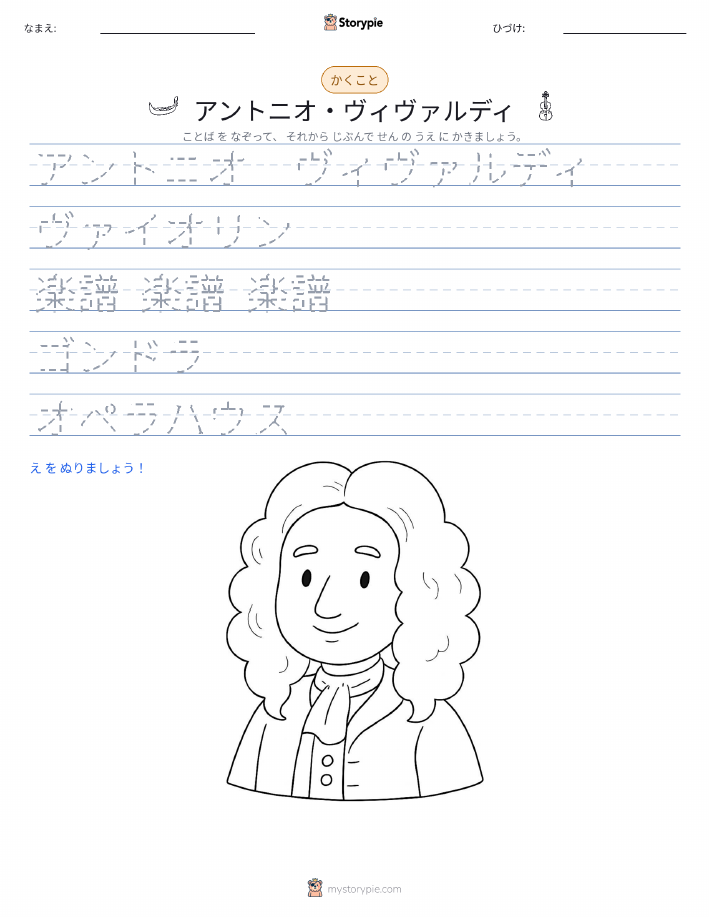 なまえ:
Storypie
ひづけ:
かくこと
アントニオ・ヴィヴァルディ
ことば を なぞって、 それから じぶんで せん の うえ に かきましょう。
アントニオ ヴィヴァルディ
ヴァイオリン
楽譜 楽譜 楽譜
ゴンドラ
オペラハウス
え を ぬりましょう！
mystorypie.com